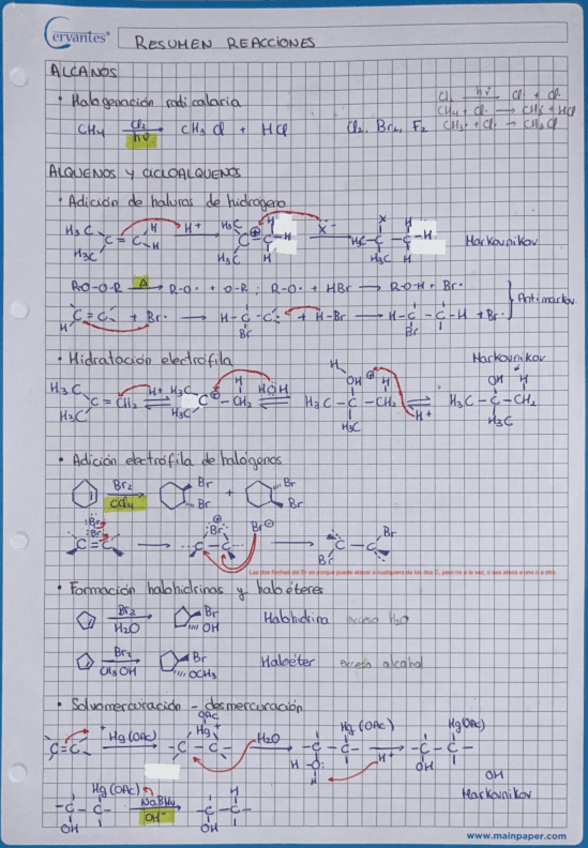 Cervantes®
RESUMEN REACCIONES
ALCANOS
• Halogenación radicalaria
CH4 Cl2 hν → CH3Cl + HCl Cl2, Br2, F2
Cl2 hν → Cl· + Cl·
CH4 + Cl· → CH3· + HCl
CH3· + Cl· → CH3Cl
ALQUENOS Y CICLOALQUENOS
• Adición de haluros de hidrogeno
H3C H3C C = C H H H+ → H3C H3C C ⊕ C H H H X⁻ → X H H3C C C H H3C H Markovnikov
RO-O-R Δ → R-O· + O-R ; R-O· + HBr → R-O-H + Br·
H C = C + Br· → H-C-C· Br + H-Br → H-C-C-H Br + Br· Antimarkov
• Hidratación electrófila
Markovnikov
H3C H3C C = CH2 H+ ⇌ H3C H3C C ⊕ - CH2 H HOH ⇌ H OH ⊕ H H3C-C-CH2 H3C ⇌ H+ OH H H3C-C-CH2 H3C
• Adición electrófila de halógenos
Br2 CCl4 → Br Br + Br Br
:Br: :Br: C = C → ⊕ Br C - C Br⊖ → Br C - C Br
Las dos flechas del Br es porque puede atacar a cualquiera de los dos C, pero no a la vez, o sea ataca a uno o a otro
• Formación halohidrinas y haloéteres
Br2 H2O → Br OH Halohidrina exceso H2O
Br2 CH3OH → Br OCH3 Haloéter exceso alcohol
• Solvomercuración - desmercuración
C = C ⁺Hg(OAc) → OAc Hg⁺ -C - C- H2O → Hg(OAc) -C - C- H-O: H H+ → Hg(OAc) -C - C- OH
OH
Markovnikov
Hg(OAc) -C - C- OH NaBH4 OH⁻ → H -C - C- OH
www.mainpaper.com